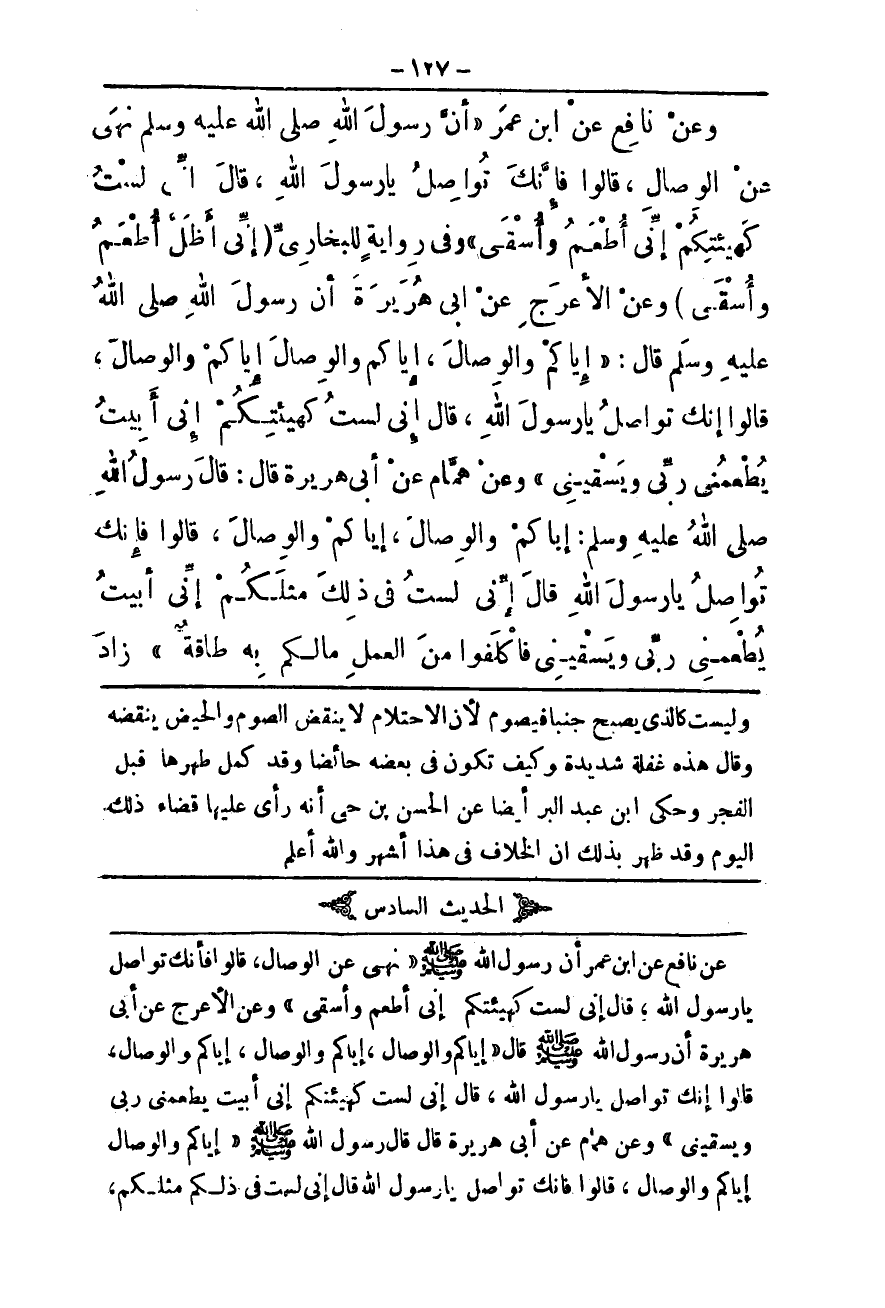 - ١٢٧ -
وعنْ نافِعٍ عنْ ابن عمرَ « أنَّ رسولَ اللهِ صلى الله عليه وسلم نهَى
عنْ الوِصالِ ، قالوا فإنَّكَ تُواصِلُ يارسولَ اللهِ ، قالَ انِّى لسْتُ
كَهيئتِكُمْ إنِّى أُطْعَمُ وأُسْقَى » وفى رِوايةٍ للبخارِىِّ ( إنِّى أَظَلُّ أُطْعَمُ
وأُسْقَى ) وعنْ الأعرَجِ عنْ ابى هُرَيرَةَ أن رسولَ اللهِ صلى اللهُ
عليهِ وسلَم قال : « إِياكمْ والوِصالَ ، إِياكم والوِصالَ إِياكمْ والوصالَ ،
قالوا إنك تواصلُ يارسولَ اللهِ ، قال إِنى لستُ كهيئتِكُمْ إنى أَبيتُ
يُطْعمُنى ربِّى ويَسْقينِى » وعنْ همَّام عنْ أبى هريرة قال : قالَ رسولُ اللهِ
صلى اللهُ عليهِ وسلم : إياكمْ والوِصالَ ، إياكمْ والوِصالَ ، قالوا فإِنك
تُواصِلُ يارسولَ اللهِ قالَ إِنّى لستُ فى ذلِكَ مثلَكُمْ إنِّى أبيتُ
يُطْعمِنى ربِّى ويَسْقينِى فاكْلَفوا منَ العملِ مالكم بِه طاقةٌ » زادَ
وليست كالذى يصبح جنبا فيصوم لأن الاحتلام لا ينقض الصوم والحيض ينقضه
وقال هذه غفلة شديدة وكيف تكون فى بعضه حائضا وقد كمل طهرها قبل
الفجر وحكى ابن عبد البر أيضا عن الحسن بن حى أنه رأى عليها قضاء ذلك
اليوم وقد ظهر بذلك ان الخلاف فى هذا أشهر والله أعلم
الحديث السادس
عن نافع عن ابن عمر أن رسول الله ﷺ « نهى عن الوصال ، قالوا فأنك تواصل
يارسول الله ؛ قال إنى لست كهيئتكم إنى أطعم وأسقى » وعن الأعرج عن أبى
هريرة أن رسول الله ﷺ قال « إياكم والوصال ، إياكم والوصال ، إياكم والوصال ،
قالوا إنك تواصل يارسول الله ، قال إنى لست كهيئتكم إنى أبيت يطعمنى ربى
ويسقينى » وعن همام عن أبى هريرة قال قال رسول الله ﷺ « إياكم والوصال
إياكم والوصال ، قالوا فانك تواصل يارسول الله قال إنى لست فى ذلكم مثلكم ،